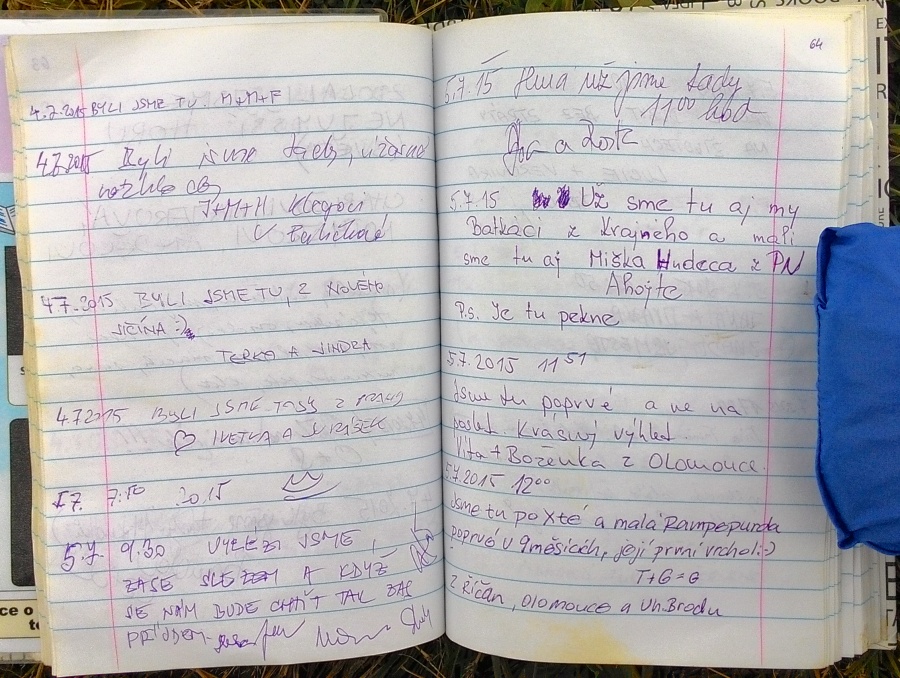 4.7.2015 BYLI JSME TU. M+M+F
4.7.2015 Byli jsme tady, úžasné
J+M+H Klegovi
4.7.2015 BYLI JSME TU, Z NOVÉHO
JIČÍNA :)
TERKA A JINDRA
4.7.2015 BYLI JSME TADY Z
♡ IVETKA A JURÁŠEK
5.7. 7:50 2015
5.7. 9.30 VYLEZLI JSME,
ZASE SLEZEM A KDYŽ
SE NÁM BUDE CHTÍT TAK ZAS
PŘIJDEM
64
5.7.15 Hurá už jsme tady
11 00 hod
a
5.7.15 Už sme tu aj my
Batkáči z Krajného a mali
sme tu aj Miška Hudeca z PN
Ahojte
P.s. Je tu pekne
5.7.2015 11 51
Jsme tu poprvé a ne na
posled. Krásný výhled.
Víťa + Boženka z Olomouce.
5.7.2015 12 00
Jsme tu po Xté a malá Rampepurda
poprvé v 9 měsících, její první vrchol :-)
T+G=G
z Říčan, Olomouce a Uh. Brodu